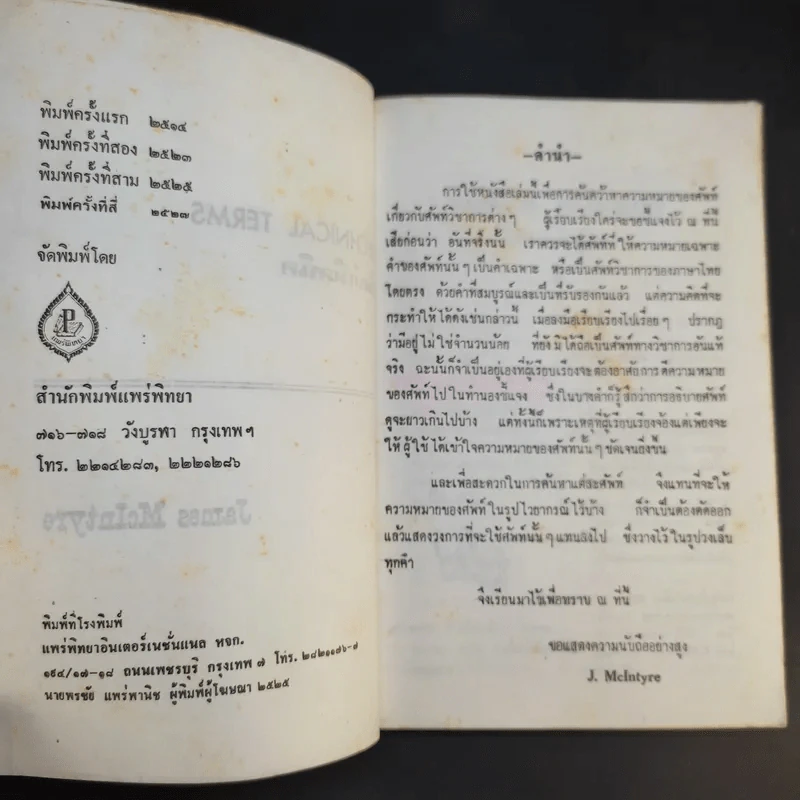 พิมพ์ครั้งแรก ๒๕๑๔
พิมพ์ครั้งที่สอง ๒๕๒๓
พิมพ์ครั้งที่สาม ๒๕๒๕
พิมพ์ครั้งที่สี่ ๒๕๒๗
จัดพิมพ์โดย
P
แพร่พิทยา
สำนักพิมพ์แพร่พิทยา
๗๑๖-๗๑๘ วังบูรพา กรุงเทพฯ
โทร. ๒๒๑๔๒๘๓, ๒๒๒๑๒๘๖
พิมพ์ที่โรงพิมพ์
แพร่พิทยาอินเตอร์เนชั่นแนล หจก.
๑๙๔/๑๗-๑๘ ถนนเพชรบุรี กรุงเทพ ๗ โทร. ๒๘๒๑๑๗๖-๗
นายพรชัย แพร่พานิช ผู้พิมพ์ผู้โฆษณา ๒๕๒๕
-คำนำ-
การใช้หนังสือเล่มนี้เพื่อการค้นคว้าหาความหมายของศัพท์
เกี่ยวกับศัพท์วิชาการต่างๆ ผู้เรียบเรียงใคร่จะขอชี้แจงไว้ ณ ที่นี้
เสียก่อนว่า อันที่จริงนั้น เราควรจะได้ศัพท์ที่ให้ความหมายเฉพาะ
คำของศัพท์นั้นๆ เป็นคำเฉพาะ หรือเป็นศัพท์วิชาการของภาษาไทย
โดยตรง ด้วยคำที่สมบูรณ์และเป็นที่รับรองกันแล้ว แต่ความคิดที่จะ
กระทำให้ได้ดังเช่นกล่าวนี้ เมื่อลงมือเรียบเรียงไปเรื่อยๆ ปรากฏ
ว่ามีอยู่ไม่ใช่จำนวนน้อย ที่ยังมิได้ถือเป็นศัพท์ทางวิชาการอันแท้
จริง ฉะนั้นก็จำเป็นอยู่เองที่ผู้เรียบเรียงจะต้องอาศัยการตีความหมาย
ของศัพท์ไปในทำนองชี้แจง ซึ่งในบางคำก็รู้สึกว่าการอธิบายศัพท์
ดูจะยาวเกินไปบ้าง แต่ทั้งนี้ก็เพราะเหตุที่ผู้เรียบเรียงจ้องแต่เพียงจะ
ให้ผู้ใช้ได้เข้าใจความหมายของศัพท์นั้นๆ ชัดเจนยิ่งขึ้น
และเพื่อสะดวกในการค้นหาแต่ละศัพท์ จึงแทนที่จะให้
ความหมายของศัพท์ในรูปไวยากรณ์ไว้บ้าง ก็จำเป็นต้องตัดออก
แล้วแสดงวงการที่จะใช้ศัพท์นั้นๆ แทนลงไป ซึ่งวางไว้ในรูปวงเล็บ
ทุกคำ
จึงเรียนมาไว้เพื่อทราบ ณ ที่นี้
ขอแสดงความนับถืออย่างสูง
J. McIntyre